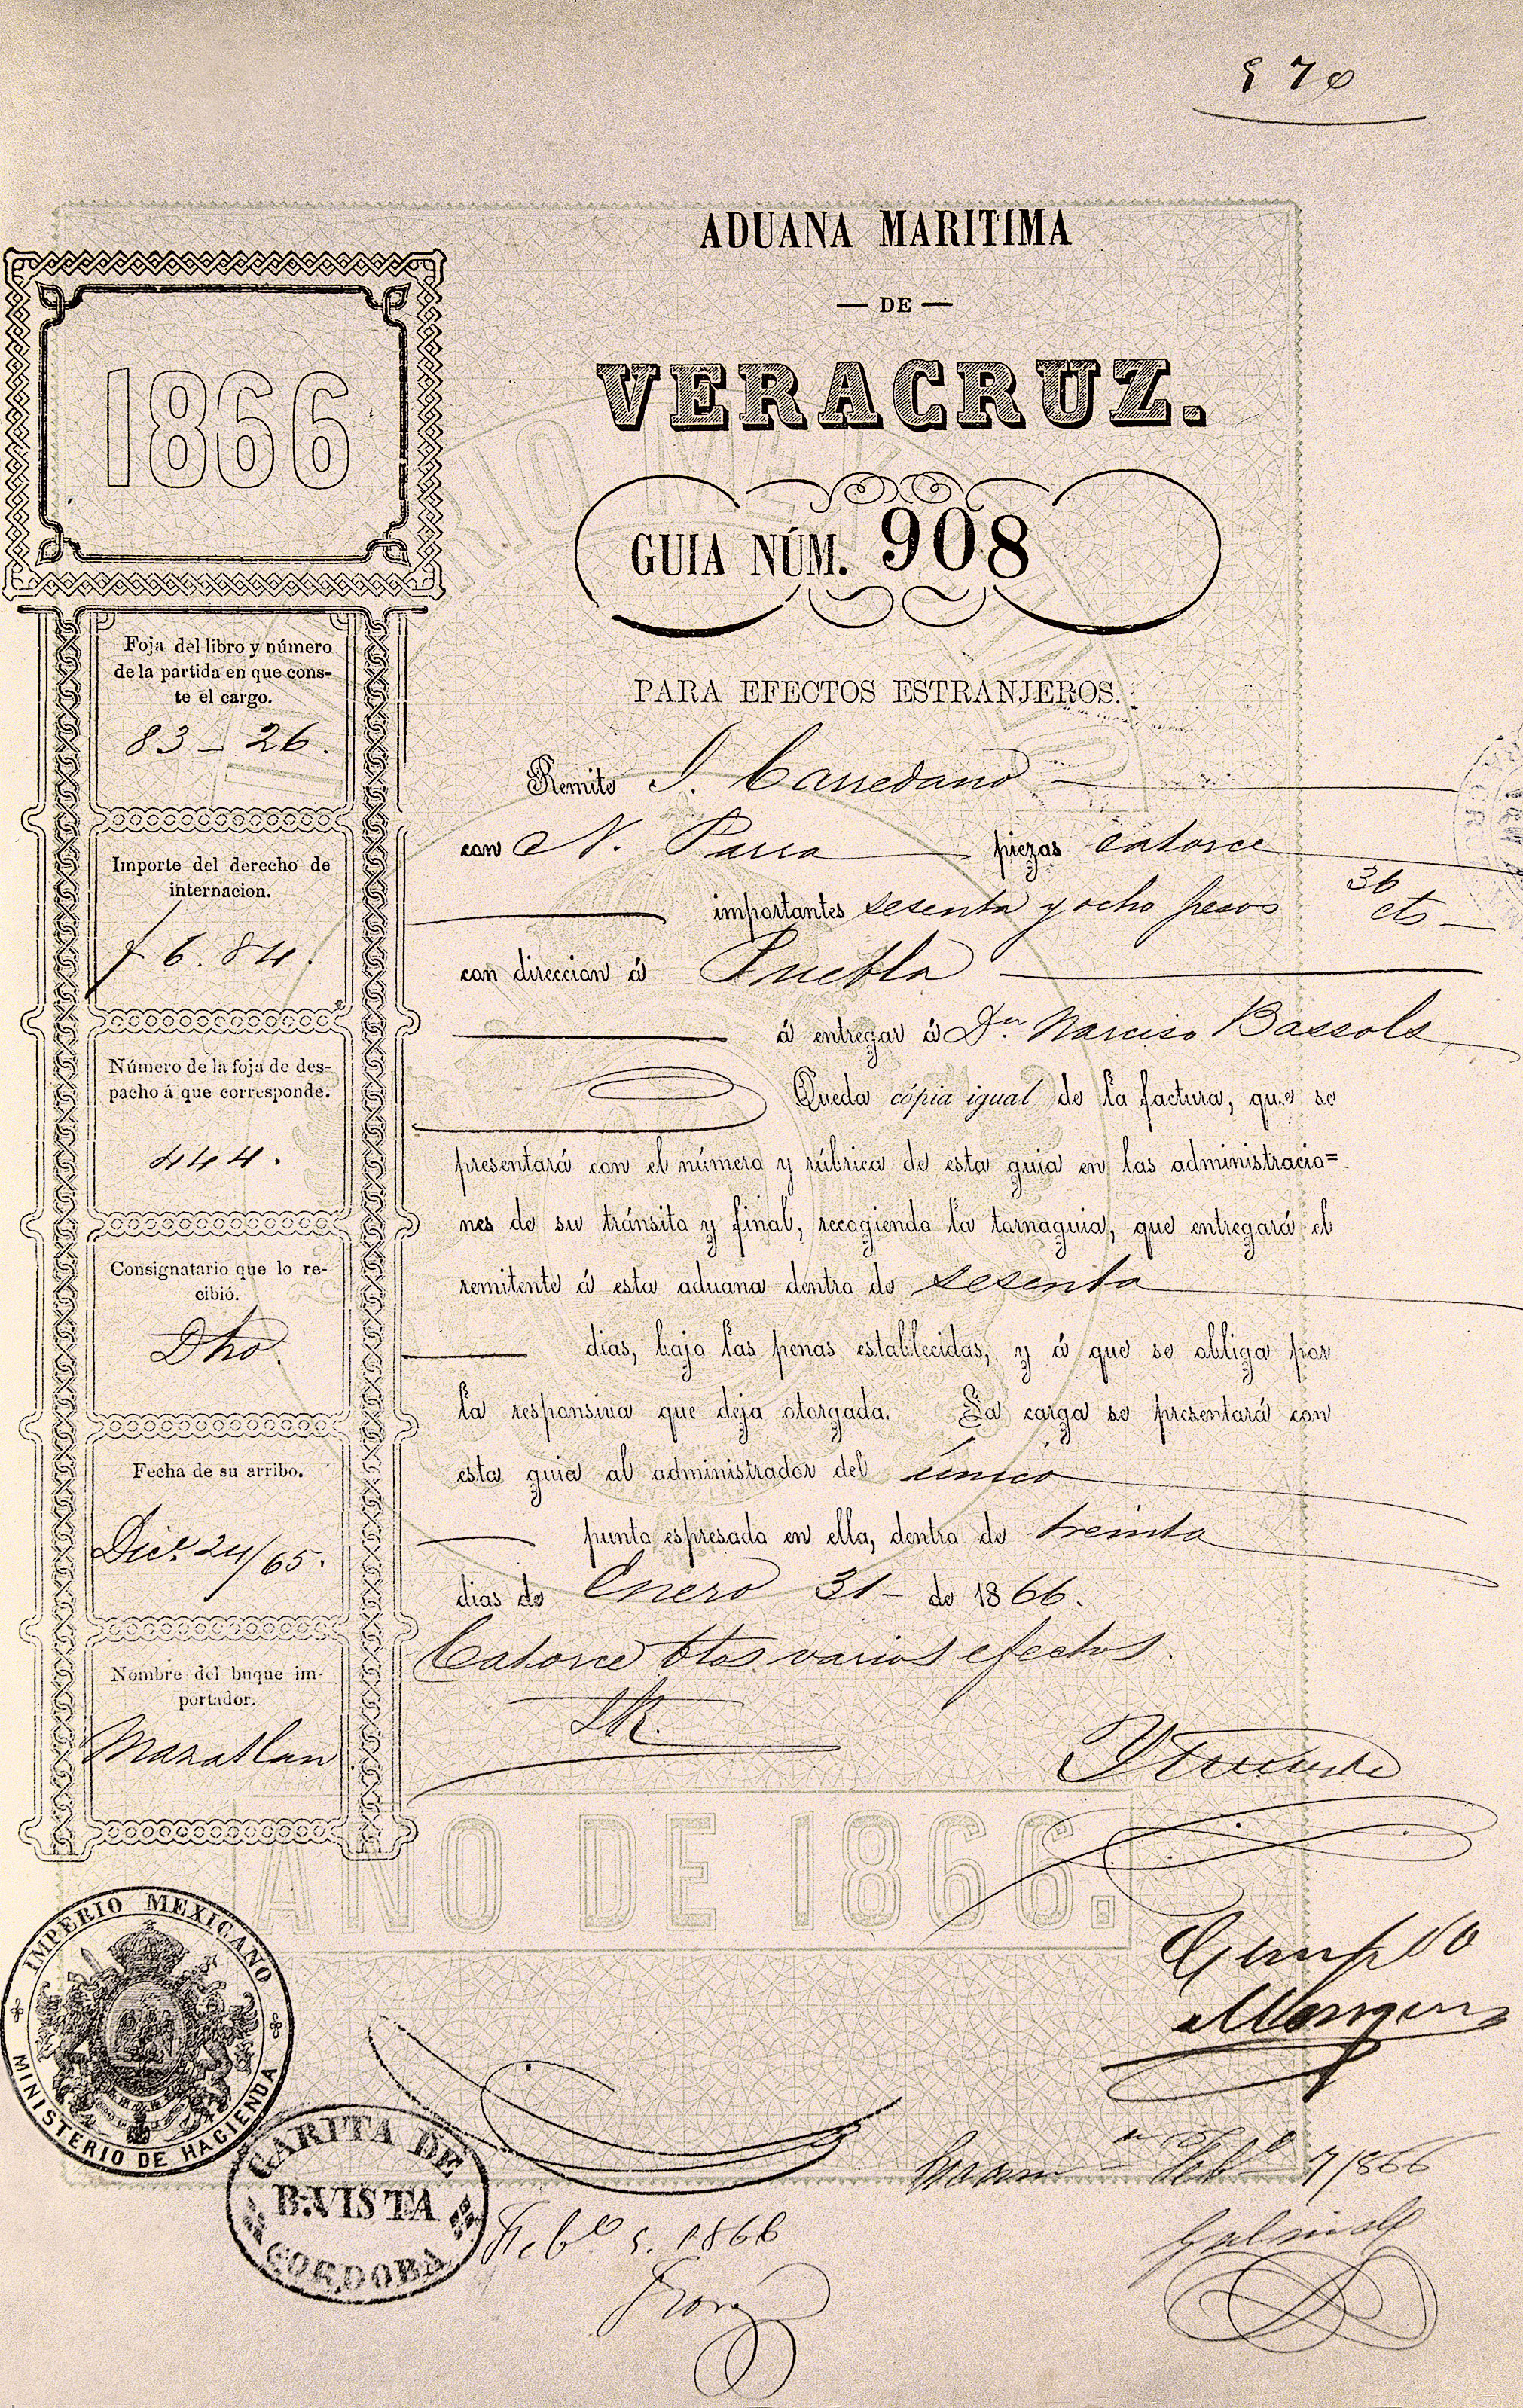 970
ADUANA MARITIMA
— DE —
VERACRUZ.
1866
GUIA NÚM. 908
PARA EFECTOS ESTRANJEROS.
Foja del libro y número
de la partida en que cons-
te el cargo.
83 - 26.
Importe del derecho de
internacion.
6.84.
Número de la foja de des-
pacho á que corresponde.
444.
Consignatario que lo re-
cibió.
Dho.
Fecha de su arribo.
Dice. 24/65.
Nombre del buque im-
portador.
Mazatlan
Remite J. Carredano
con N. Parra piezas catorce
importantes sesenta y ocho pesos 36 cts
con direccion á Puebla
á entregar á Dn. Narciso Bassols
Queda cópia igual de la factura, que se
presentará con el número y rúbrica de esta guia en las administracio=
nes de su tránsito y final, recogiendo la tornaguia, que entregará el
remitente á esta aduana dentro de sesenta
dias, bajo las penas establecidas, y á que se obliga por
la responsiva que deja otorgada. La carga se presentará con
esta guia al administrador del único
punto espresado en ella, dentro de treinta
dias de Enero 31 - de 1866.
Catorce btos. varios efectos.
AÑO DE 1866.
IMPERIO MEXICANO
MINISTERIO DE HACIENDA
GARITA DE
B.VISTA
CORDOBA
Febo. 5. 1866
Febo. 7/866